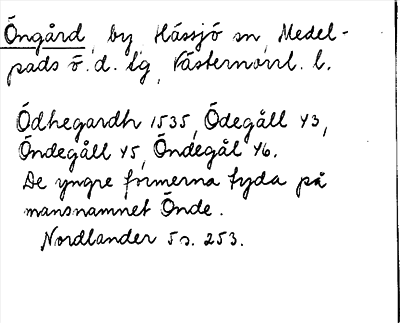 Öngård, by, Hässjö sn, Medel-
pads ö. d. lg, Västernorrl. l.
Ödhegardh 1535, Ödegåll 43,
Öndegåll 45, Öndegål 46.
De yngre formerna tyda på
mansnamnet Önde.
Nordlander 5 s. 253.